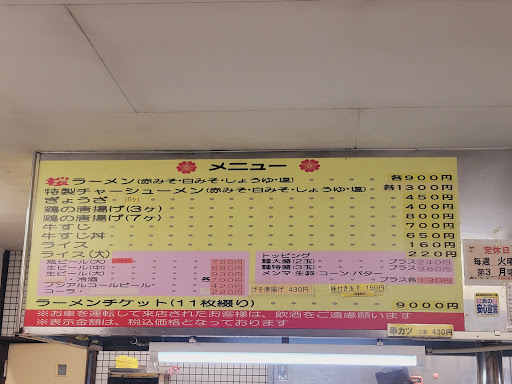 メニュー
桜ラーメン(赤みそ・白みそ・しょうゆ・塩) 各900円
特製チャーシューメン(赤みそ・白みそ・しょうゆ・塩) 各1300円
ぎょうざ (6ヶ) 450円
鶏の唐揚げ(3ヶ) 400円
鶏の唐揚げ(7ヶ) 800円
牛すじ 700円
牛すじ丼 650円
ライス 160円
ライス(大) 220円
瓶ビール(大) 780円
生ビール(中) 680円
生ビール(大) 900円
・冷酒 各700円
ノンアルコールビール 420円
コーラ 220円
トッピング
麺大盛(2玉) プラス240円
麺特盛(3玉) プラス360円
メンマ・生卵・コーン・バター
プラス各130円
げそ唐揚げ 430円
味付き玉子 160円
ラーメンチケット(11枚綴り) 9000円
※お車を運転して来店されたお客様は、飲酒をご遠慮願います
※表示金額は、税込価格となっております
串カツ 430円
定休日
毎週 火曜
第3 月曜